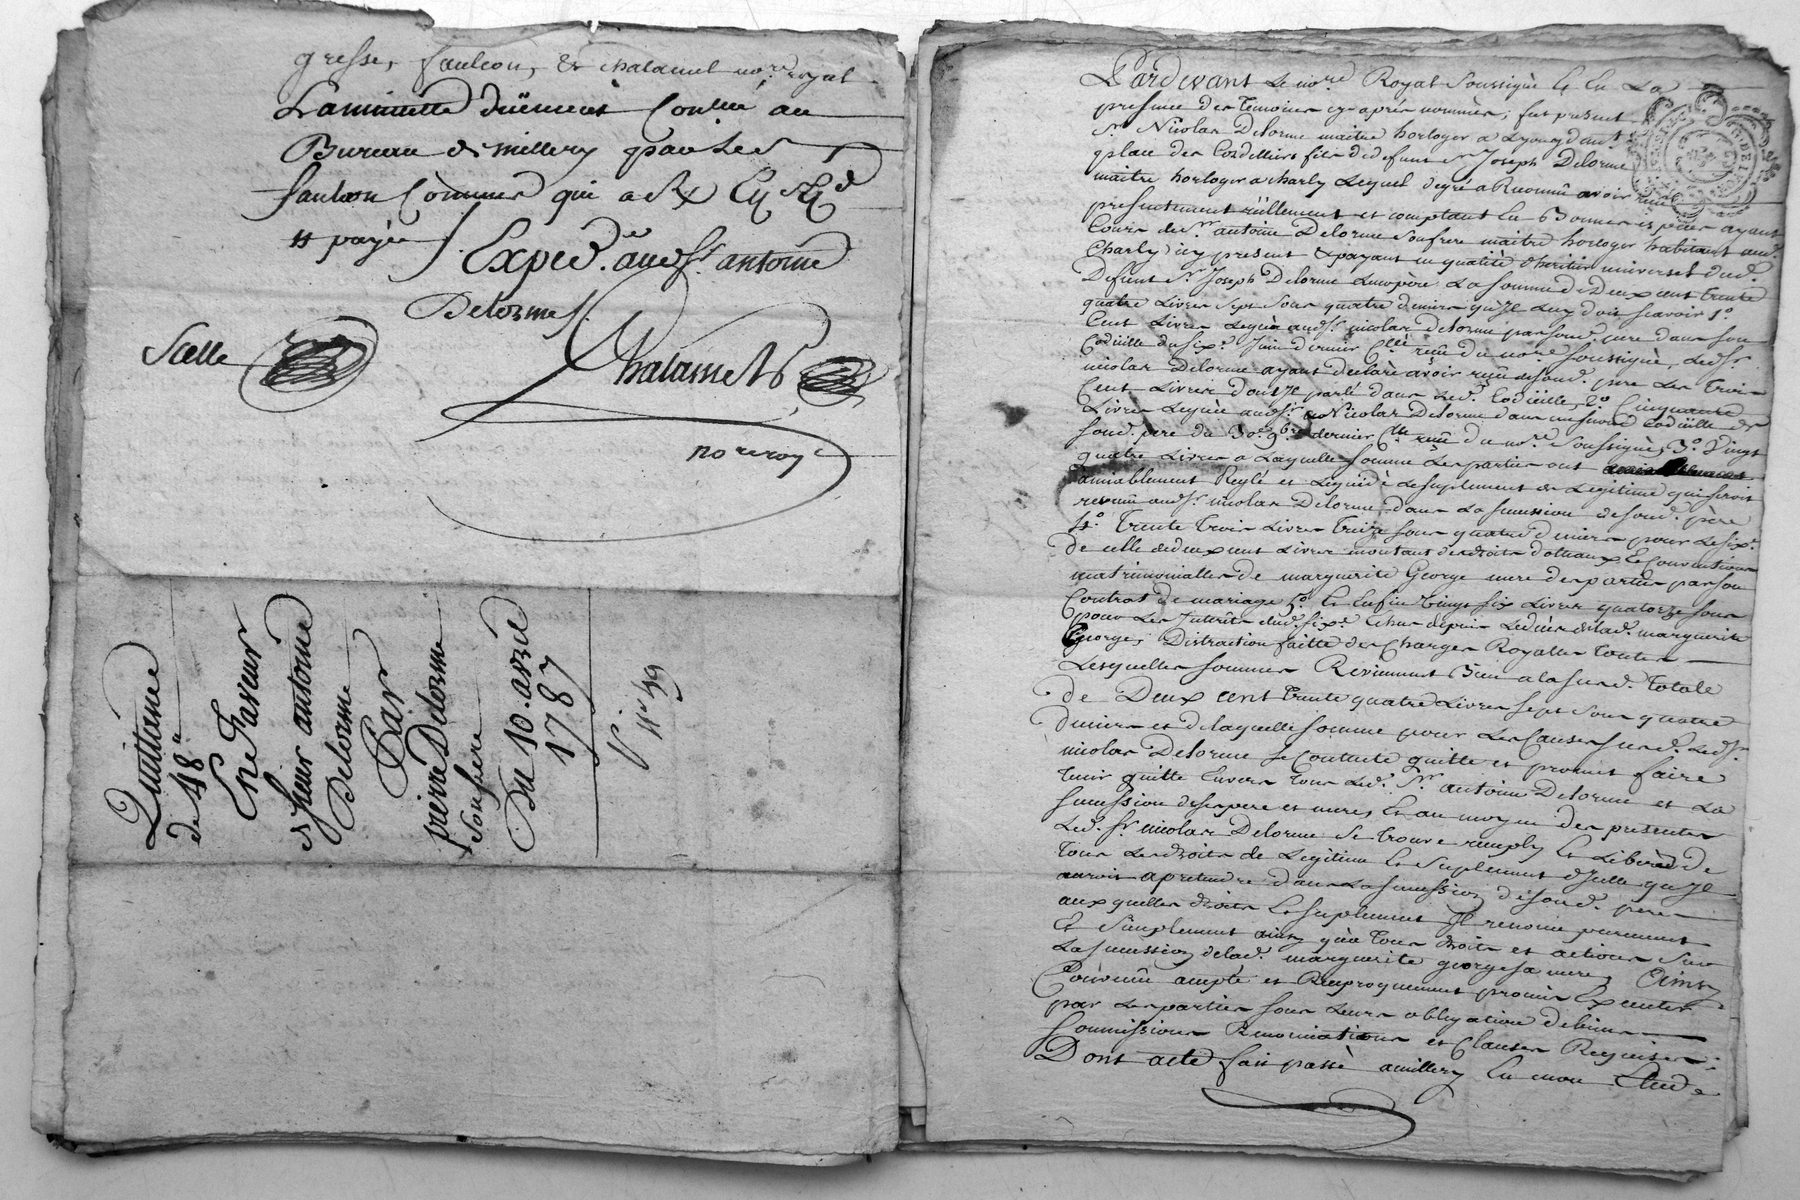 gresse, faulcon, & chalamel no.re royal
La minutte düement Con.llé au
Bureau de millery par Led.
faulcon Commis qui a
payé
Exped. aud. Sr. antoine
Delorme
Scelle
Chalamel
no re roy.
Quittance
de 48
En Faveur
de sieur antoine
Delorme
Par
pierre Delorme
son frere
Du 10. avril
1787
Pardevant Le no.re Royal Soussigné Et En La
presence des temoins cy aprés nommés, fut present
Sr. Nicolas Delorme maitre horloger a Lyon y dem.t
place des Cordelliers fils de defunt Sr. Joseph Delorme
maitre horloger a charly Lequel degré a Reconnû avoir reçu
presentement réellement et comptant En Bonnes Especes ayant
Cours de Sr. antoine Delorme son frere maitre horloger habitant aud.
Charly icy present & payant en qualité d'heritier universel dud.
Defunt Sr. Joseph Delorme Leur père La somme de Deux cent trente
quatre Livres sept sous quatre deniers qu'Il Luy doit sçavoir 1.o
Cent Livres Leguée aud. Sr. nicolas Delorme par sond. pere dans son
Codicille du six.e Juin dernier reçu du no.re soussigné, Led. Sr.
nicolas Delorme ayant declaré avoir reçu de sond. pere Les trois
Cent Livres dont Il parlé dans Led. Codicille, 2.o Cinquante
Livres Leguée aud. Sr. Nicolas Delorme dans un second Codicille de
sond. pere du 30.e 9.bre dernier reçu du no.re soussigné, 3.o Vingt
quatre Livres a Laquelle somme Les parties ont
amiablement Reglé et Liquidé Le suplement de Legitime qui seroit
revenû aud. Sr. nicolas Delorme dans La succession de sond. père
4.o trente trois Livres treize sous quatre deniers pour Le six.e
de celle de deux cent Livres montant des droits dotaux Et Conventions
matrimonialles de marguerite George mere des parties par son
Contrat de mariage 5.o Et Enfin vingt six Livres quatorze sous
pour Les Interêts dud. six.e Echus depuis Le décès de lad. marguerite
George, Distraction faitte des Charges Royalles toutes
Lesquelles sommes Reviennent Bien a la susd. totale
de Deux cent trente quatre Livres sept sous quatre
deniers et de laquelle somme pour Les Causes susd. Led. Sr.
nicolas Delorme se Contente quitte et promet faire
tenir quitte Envers tous Led. Sr. antoine Delorme et La
succession de ses pere et mere, Et au moyen des presentes
Led. Sr nicolas Delorme se trouve remply Et Liberé de
tous Les droits de Legitime Et Suplement d'Icelle qu'Il
auroit a pretendre dans La succession de sond. pere
auxquelles droits Et suplement Il renonce purement
Et Simplement ainsy qu'a tous droits et actions sur
La succession de lad. marguerite george sa mere, Ainsy
Convenû accepté et Reciproquement promis Executer
par Les parties sous Leurs obligations de biens
soumissions Renonciations et Clauses Requises
Dont acte fait passé a millery En mon Etude